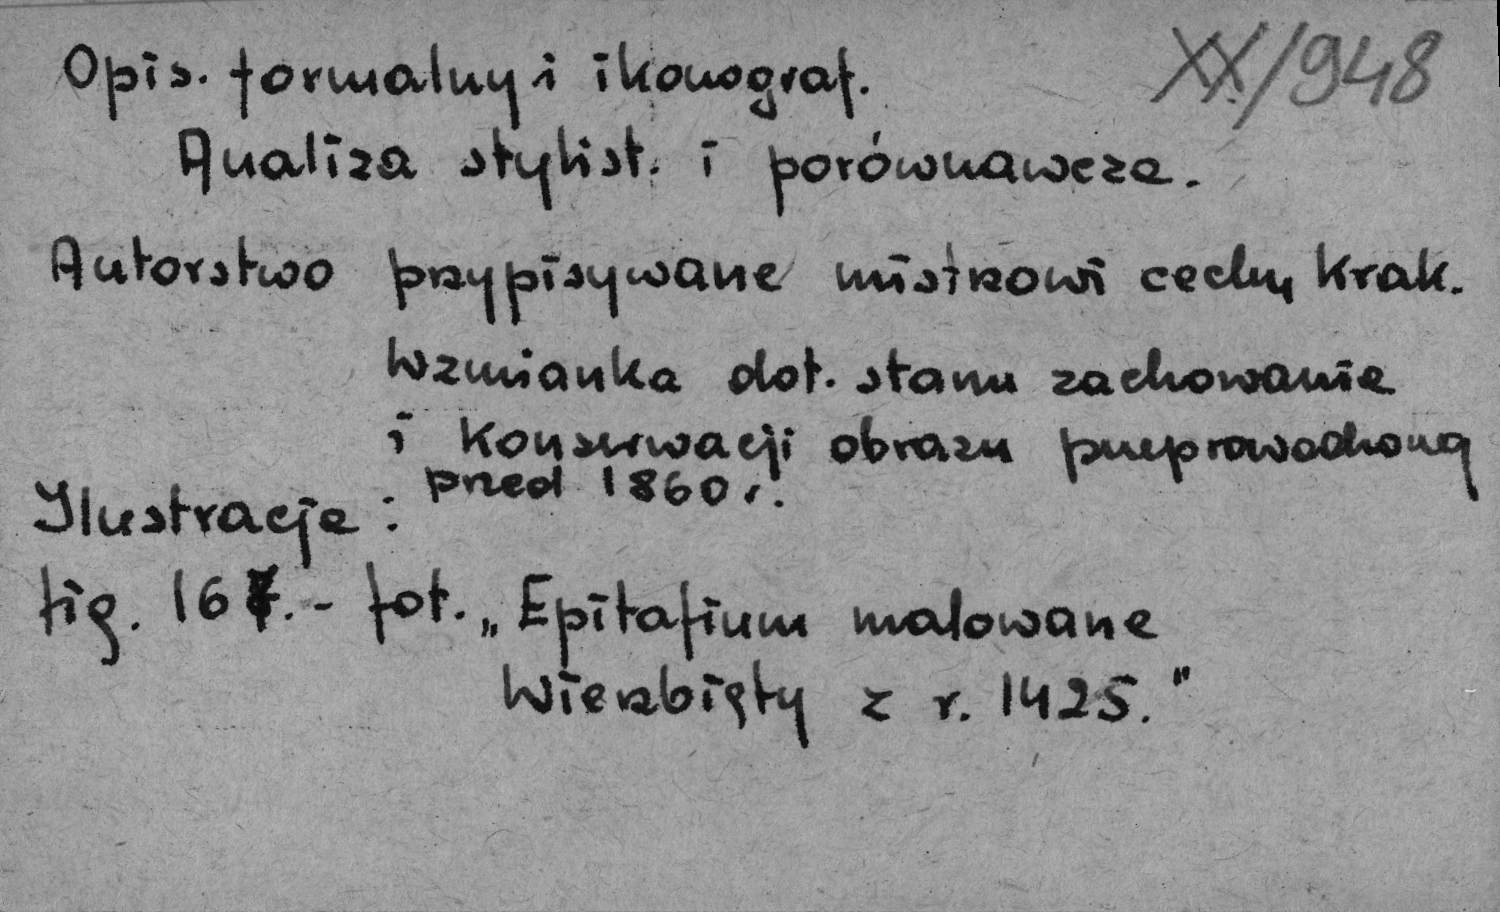 XX/948
Opis. formalny i ikonograf.
Analiza stylist. i porównawcza.
Autorstwo przypisywane mistrzowi cechu krak.
Wzmianka dot. stanu zachowania
i konserwacji obrazu przeprowadzoną
przed 1860 r.
Ilustracje:
fig. 167. - fot. „Epitafium malowane
Wierzbięty z r. 1425."